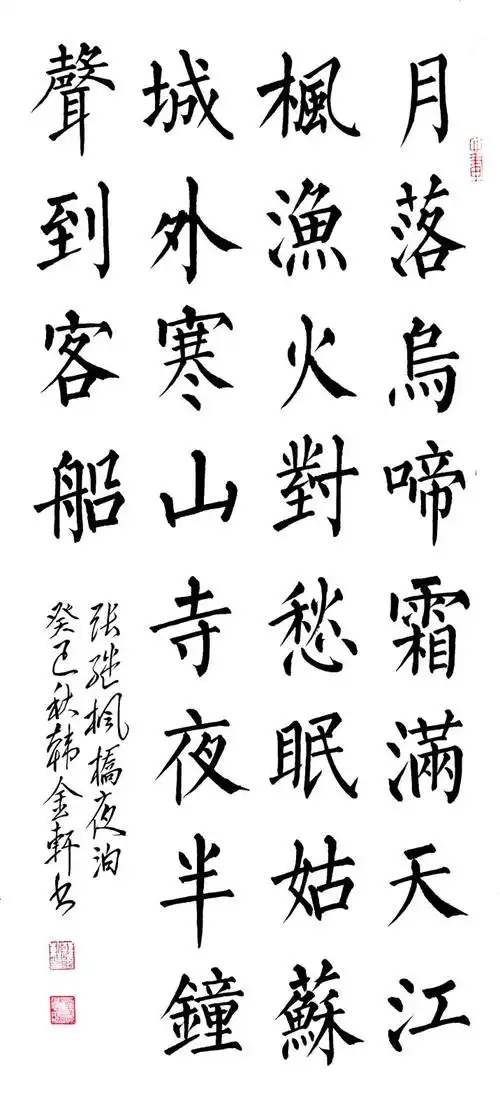 月落烏啼霜滿天江
楓漁火對愁眠姑蘇
城外寒山寺夜半鐘
聲到客船
张继枫橋夜泊
癸巳秋韩金軒书